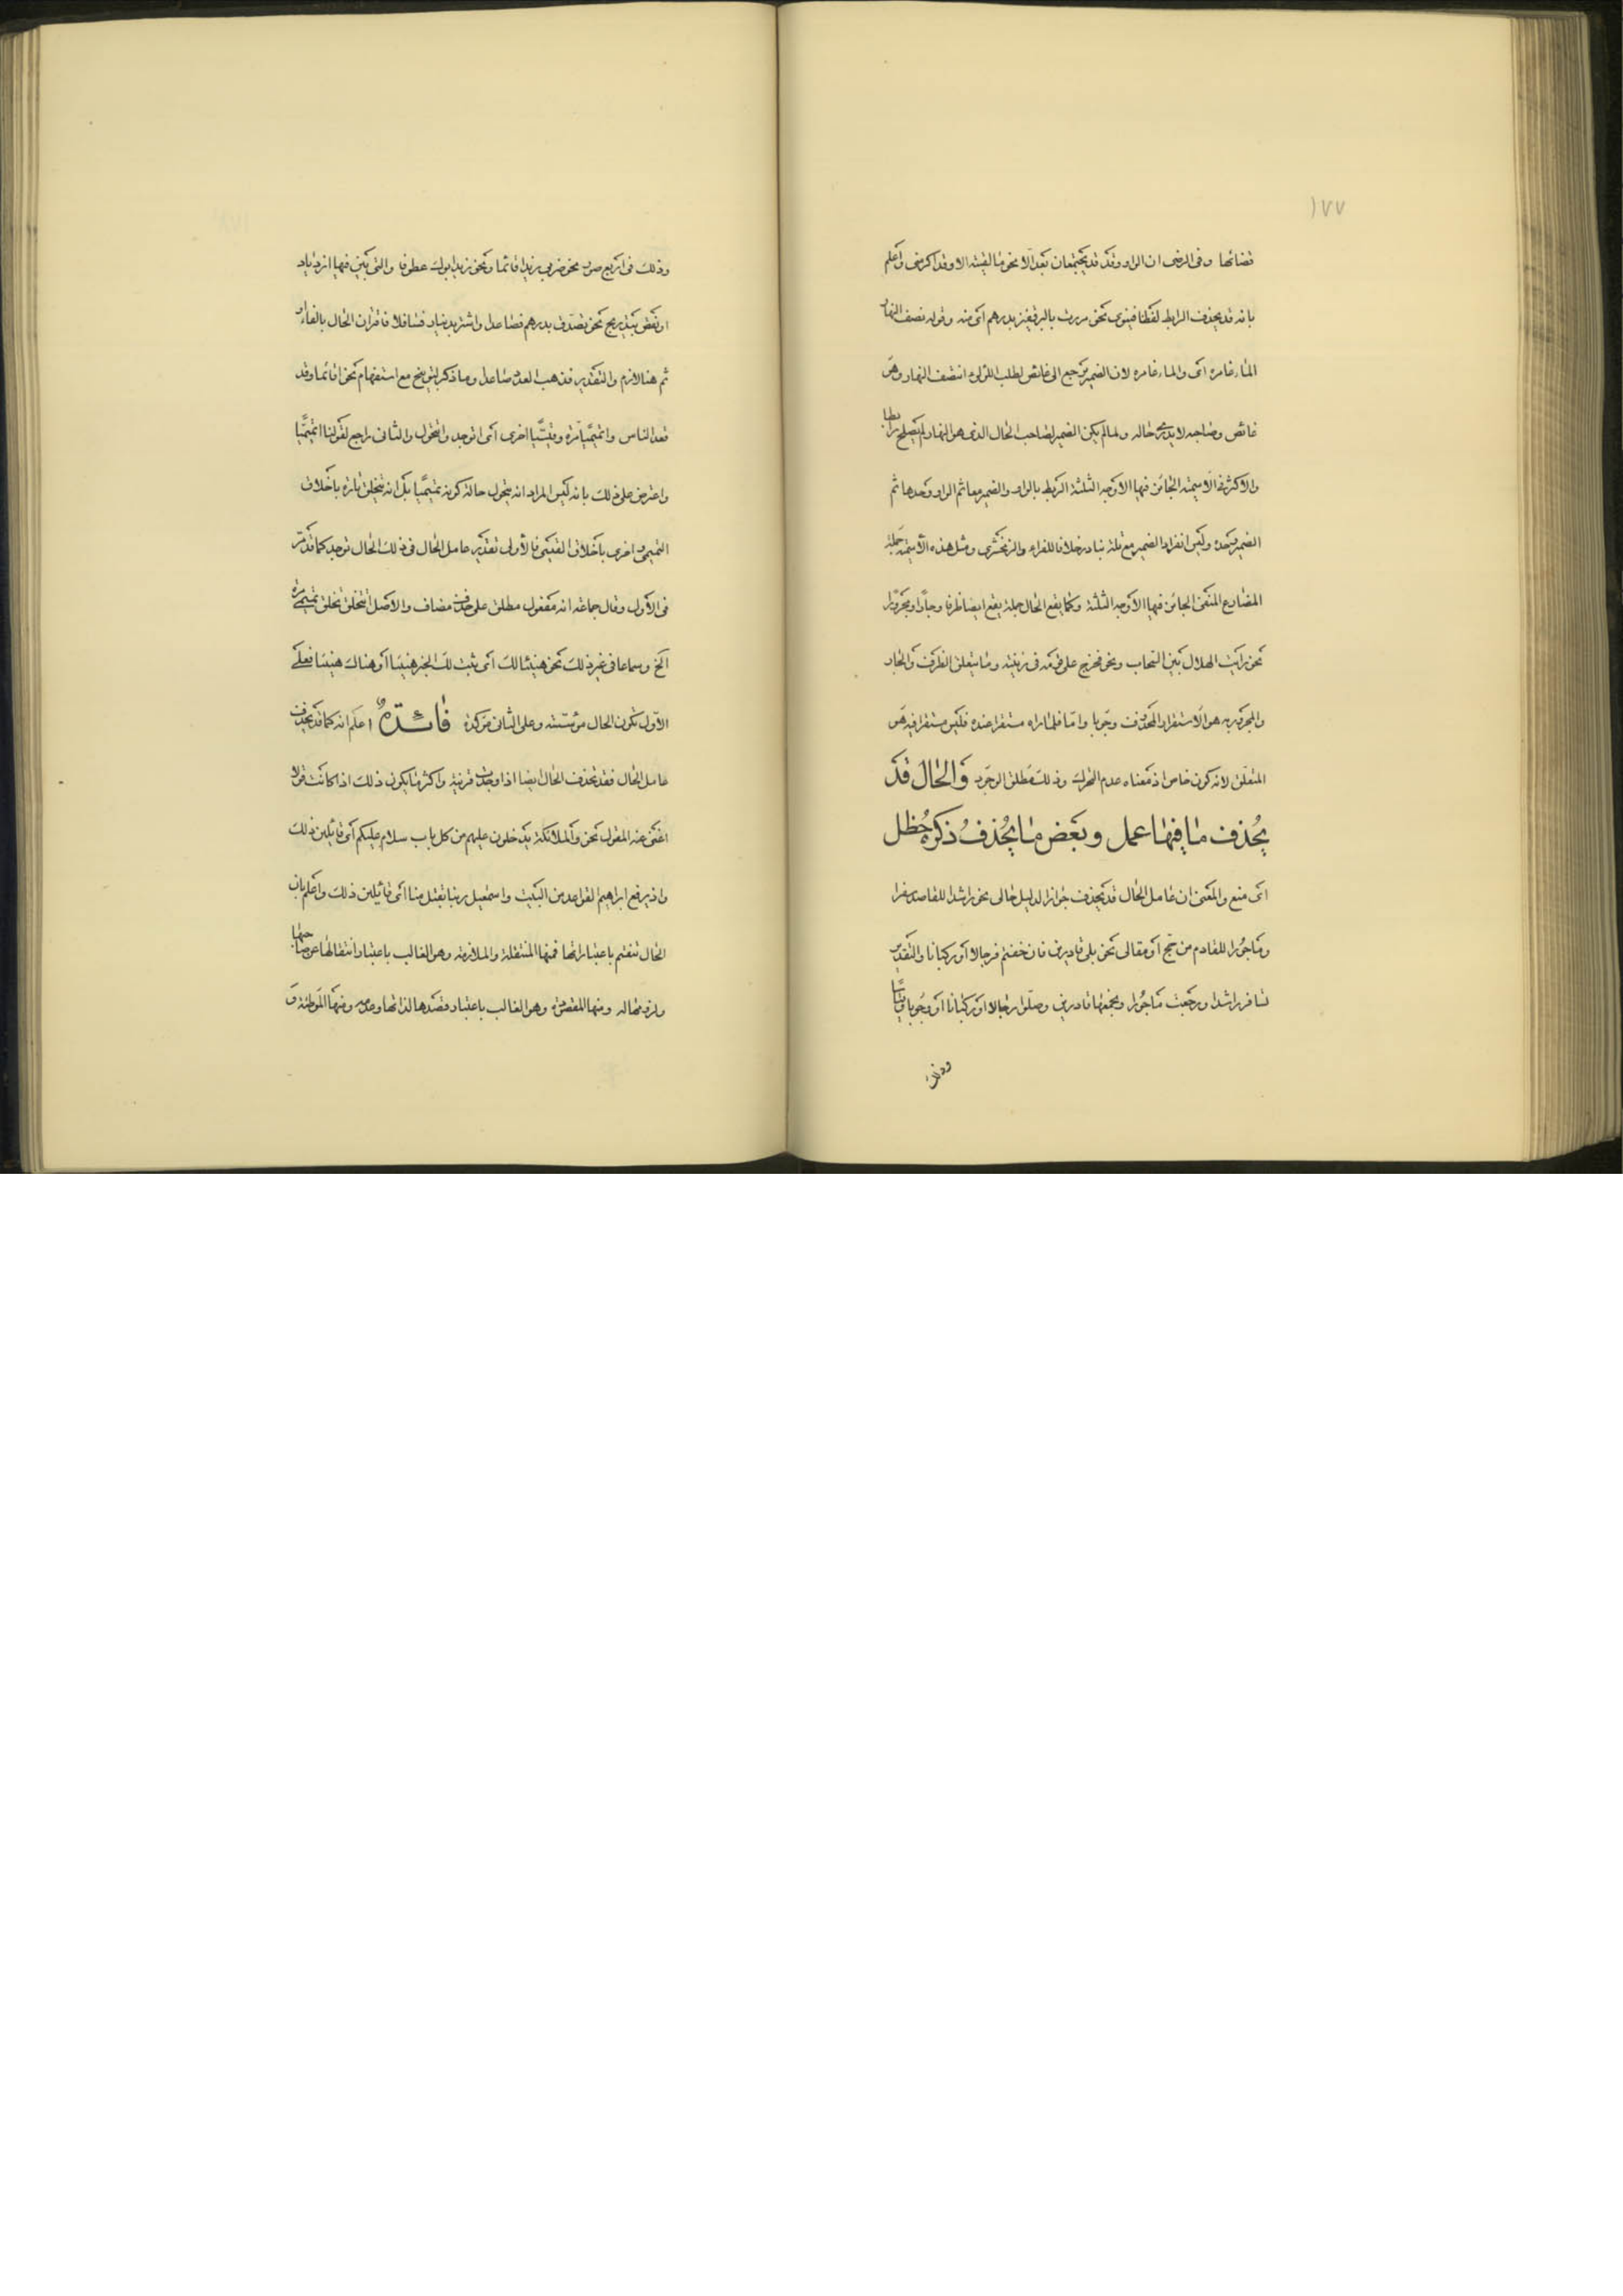 ١٧٧
قضائها وفى الرضى ان الواو وقد قد يجتمعان بعد الا نحو ما لقيته الا وقد اكرمنى واعلم
بانه قد يحذف الرابط لفظا فينوى نحو مررت بالبر قفيز بدرهم اى منه وقوله نصف النهار
الماء غامره اى والماء غامره لان الضمير يرجع الى غائص لطلب اللؤلؤ انتصف النهار وهو
غائص وصاحبه لا يدرى حاله ولما لم يكن الضمير لصاحب الحال الذى هو النهار لم يصلح رابطا
والاكثر فى الاسمية الجائز فيها الاوجه الثلثة الربط بالواو والضمير معا ثم الواو وحدها ثم
الضمير وحده وليس انفراد الضمير مع قلته نادر خلافا للفراء والزمخشرى ومثل هذه الاسمية جملة
المضارع المنفى الجائز فيها الاوجه الثلثة وكما يقع الحال جملة يقع ايضا ظرفا وجارا ومجرورا
نحو رايت الهلال بين السحاب ونحو فخرج على قومه فى زينته وما يتعلق الظرف والجار
والمجرور به هو الاستقرار المحذوف وجوبا واما فلما راه مستقرا عنده فليس مستقرا فيه هو
المتعلق لانه كون خاص اذ معناه عدم التحرك وذلك مطلق الوجود والحال قد
يُحذف ما فيها عمل وبعض ما يُحذفُ ذكرهُ حُظل
اى منع والمعنى ان عامل الحال قد يحذف جوازا لدليل حالى نحو راشدا للقاصد سفرا
وماجورا للقادم من حج او مقالى نحو بلى قادرين فان خفتم فرجالا او ركبانا والتقدير
تسافر راشدا ورجعت ماجورا ونجمعها قادرين وصلوا رجالا او ركبانا او وجوبا قياسا
وذلك
وذلك فى اربع صور نحو ضربى زيدا قائما ونحو زيد ابوك عطوفا والتى يبين فيها ازدياد
او نقص بتدريج نحو تصدق بدرهم فصاعدا واشتر بدينار فسافلا فاقتران الحال بالفاء او
ثم هنا لازم والتقدير فذهب العدد صاعدا وما ذكر لتوبيخ مع استفهام نحو اقائما وقد
قعد الناس واتميميا مرة وقيسيا اخرى اى اتوجد واتتحول والثانى راجع لقولنا اتميميا
واعترض على ذلك بانه ليس المراد انه يتحول حالة كونه تميميا بل انه يتخلق تارة باخلاق
التميمى واخرى باخلاق القيسى فالاولى تقدير عامل الحال فى ذلك الحال توجد كما قدمر
فى الاول وقال جماعة انه مفعول مطلق على حذف مضاف والاصل اتتخلق تخلق تميمى مرة
الخ وسماعا فى غير ذلك نحو هنيئا لك اى ثبت لك الخير هنيئا او هناك هنيئا فعلى
الاول تكون الحال مؤسسة وعلى الثانى مؤكدة فائدة اعلم انه كما قد يحذف
عامل الحال فقد تحذف الحال ايضا اذا وجدت قرينة واكثر ما يكون ذلك اذا كانت قولا
اغنى عنه المقول نحو والملائكة يدخلون عليهم من كل باب سلام عليكم اى قائلين ذلك
واذ يرفع ابراهيم القواعد من البيت واسمعيل ربنا تقبل منا اى قائلين ذلك واعلم بان
الحال تنقسم باعتبارات فمنها المنتقلة والملازمة وهو الغالب باعتبار انتقالها عن صاحبها
ولزومها له ومنها المقصودة وهو الغالب باعتبار قصدها لذاتها وعدمه ومنها الموطئة و